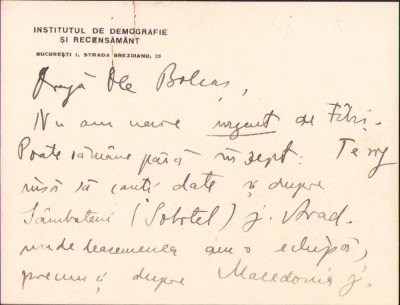 INSTITUTUL DE DEMOGRAFIE
ȘI RECENSĂMÂNT
BUCUREȘTI I, STRADA BREZOIANU, 23
Dragă Dle Bolcaș,
Nu am nevoe urgent de Fibiș.
Poate rămâne până în sept. Te rog
însă să cauți date și despre
Sâmbăteni (Sobotel) j. Arad.
unde deasemenea am o echipă,
precum și despre Macedonia j.